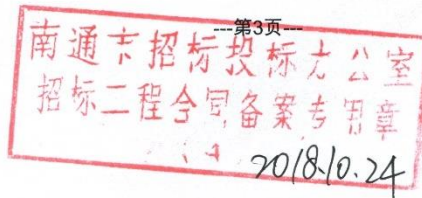 ---第3页---
南通市招标投标办公室
招标工程合同备案专用章
2018.10.24